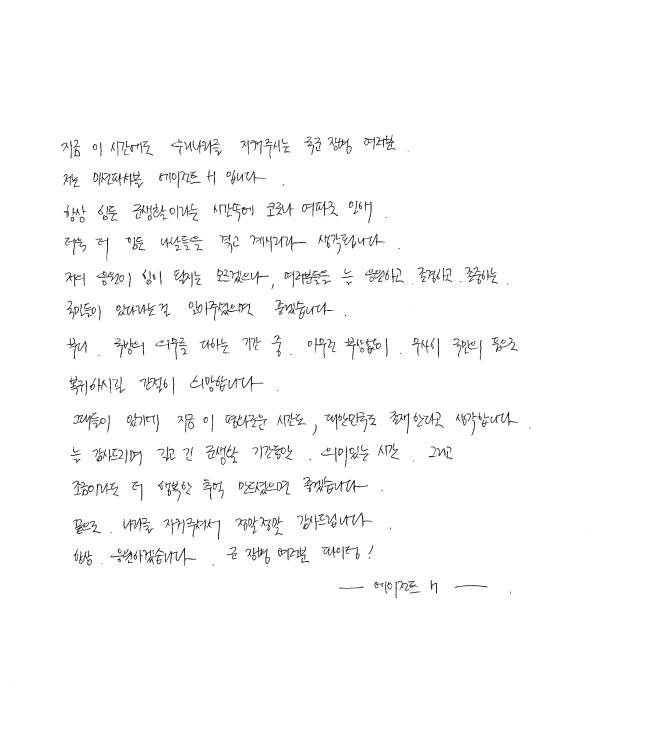 지금 이 시간에도 우리나라를 지켜주시는 국군 장병 여러분 .
저는 미션파서블 에이전트 H 입니다 .
항상 힘든 군생활이라는 시간속에 코로나 여파로 인해 .
더욱 더 힘든 나날들을 겪고 계시리라 생각됩니다 .
저의 응원이 힘이 될지는 모르겠으나, 여러분들을 늘 응원하고. 존경하고. 존중하는.
국민들이 있다라는걸 알아주셨으면 좋겠습니다 .
부디 . 국방의 의무를 다하는 기간 중 . 아무런 부상없이 . 무사히 국민의 품으로
복귀하시길 간절히 희망합니다 .
그대들이 있기에 지금 이 평화로운 시간도, 대한민국도 존재한다고 생각합니다 .
늘 감사드리며 길고 긴 군생활 기간동안 . 의미있는 시간 . 그리고
조금이라도 더 행복한 추억 만드셨으면 좋겠습니다 .
끝으로 . 나라를 지켜주셔서 정말정말 감사드립니다 .
항상 . 응원하겠습니다 . 군 장병 여러분 화이팅!
— 에이전트 H — .